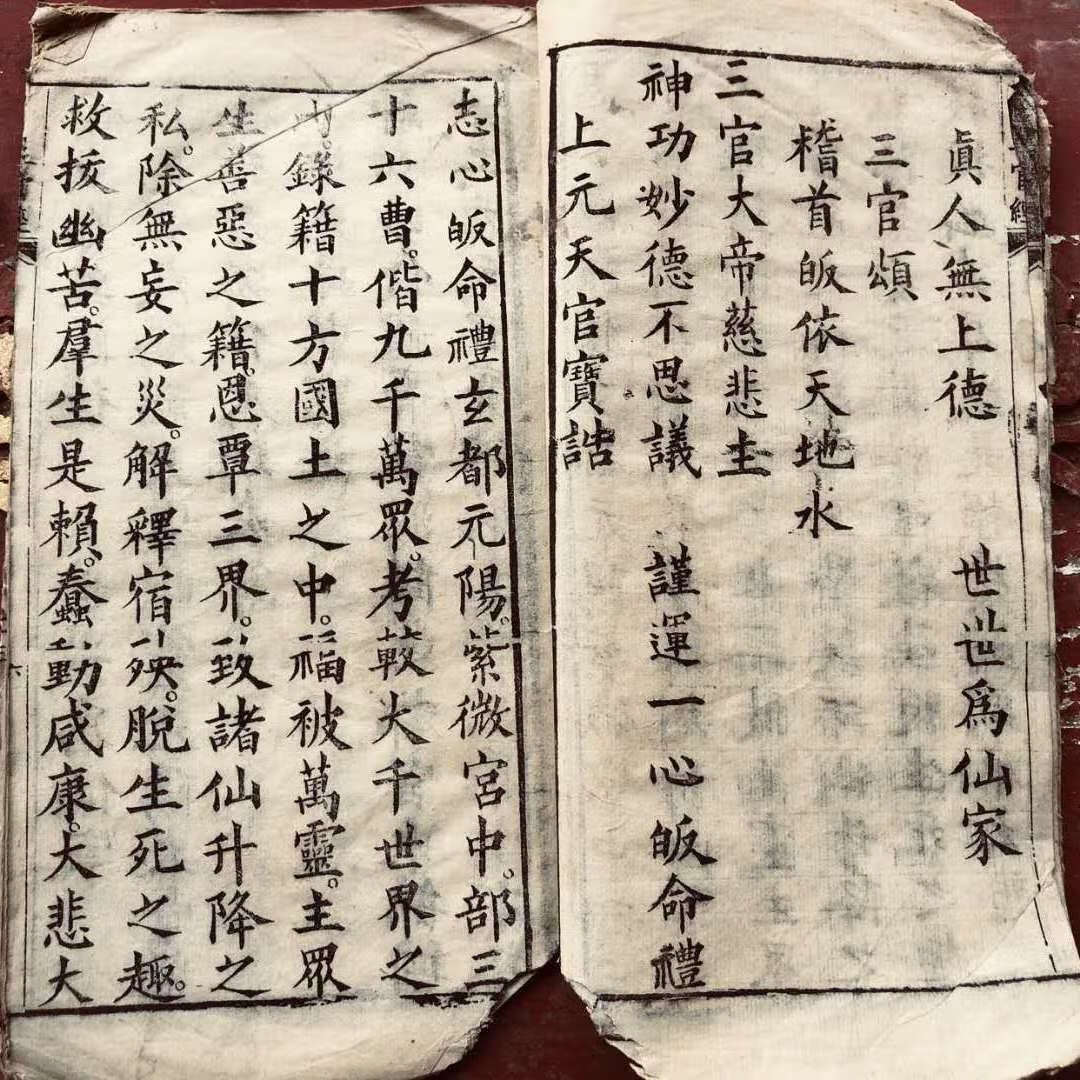 眞人無上德 世世爲仙家
三官頌
稽首皈依天地水
三官大帝慈悲主
神功妙德不思議 謹運一心皈命禮
上元天官寶誥
志心皈命禮玄都元陽。紫微宮中。部三
十六曹。偕九千萬眾。考較大千世界之
內。錄籍十方國土之中。福被萬靈。主眾
生善惡之籍。恩覃三界。致諸仙升降之
私。除無妄之災。解釋宿殃。脫生死之趣。
救拔幽苦。羣生是賴。蠢動咸康。大悲大